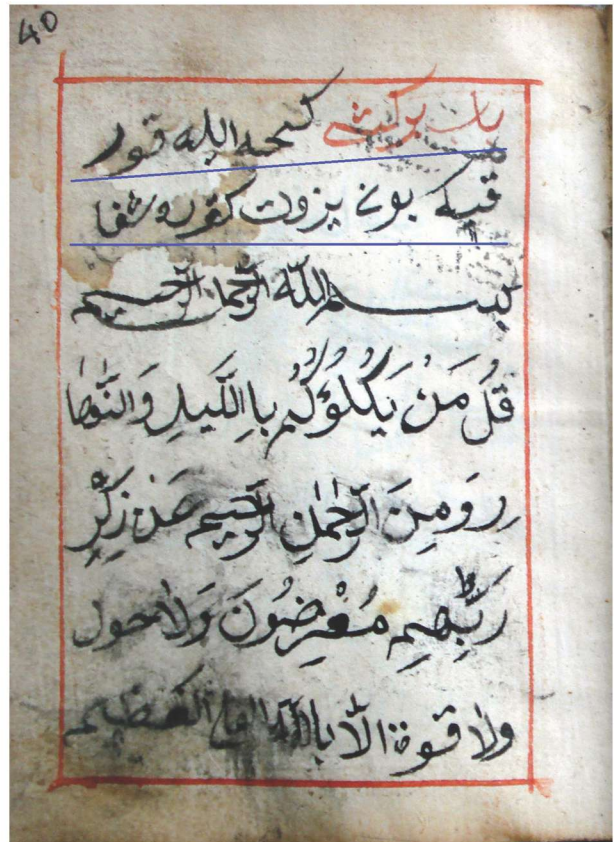 40
باب بر كشي كجه ايله قور
بوني يزوب شفا
بســـم الله الرحمان الرحيم
قُلْ مَنْ يَكْلُؤُكُمْ بِاللَّيلِ وَالنَّها
رِ وَمِنَ الرَّحْمٰنِ الرَّحيم عَن ذِكْرِ
رَبِّهِم مُعْرِضُونَ وَلا حول
ولا قوة الا بالله العلي العظيم